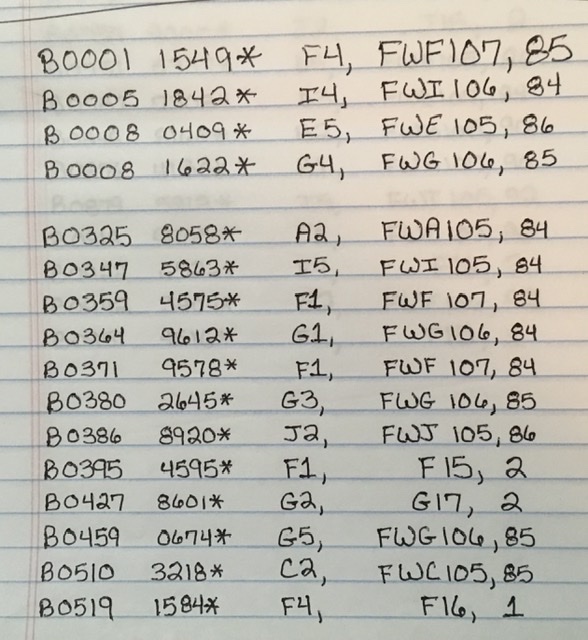 B0001 1549* F4, FWF107, 85
B0005 1842* I4, FWI 106, 84
B0008 0409* E5, FWE 105, 86
B0008 1622* G4, FWG 106, 85
B0325 8058* A2, FWA105, 84
B0347 5863* I5, FWI 105, 84
B0359 4575* F1, FWF 107, 84
B0364 9612* G1, FWG106, 84
B0371 9578* F1, FWF 107, 84
B0380 2645* G3, FWG 106, 85
B0386 8920* J2, FWJ 105, 86
B0395 4595* F1, F15, 2
B0427 8601* G2, G17, 2
B0459 0674* G5, FWG106, 85
B0510 3218* C2, FWC105, 85
B0519 1584* F4, F16, 1